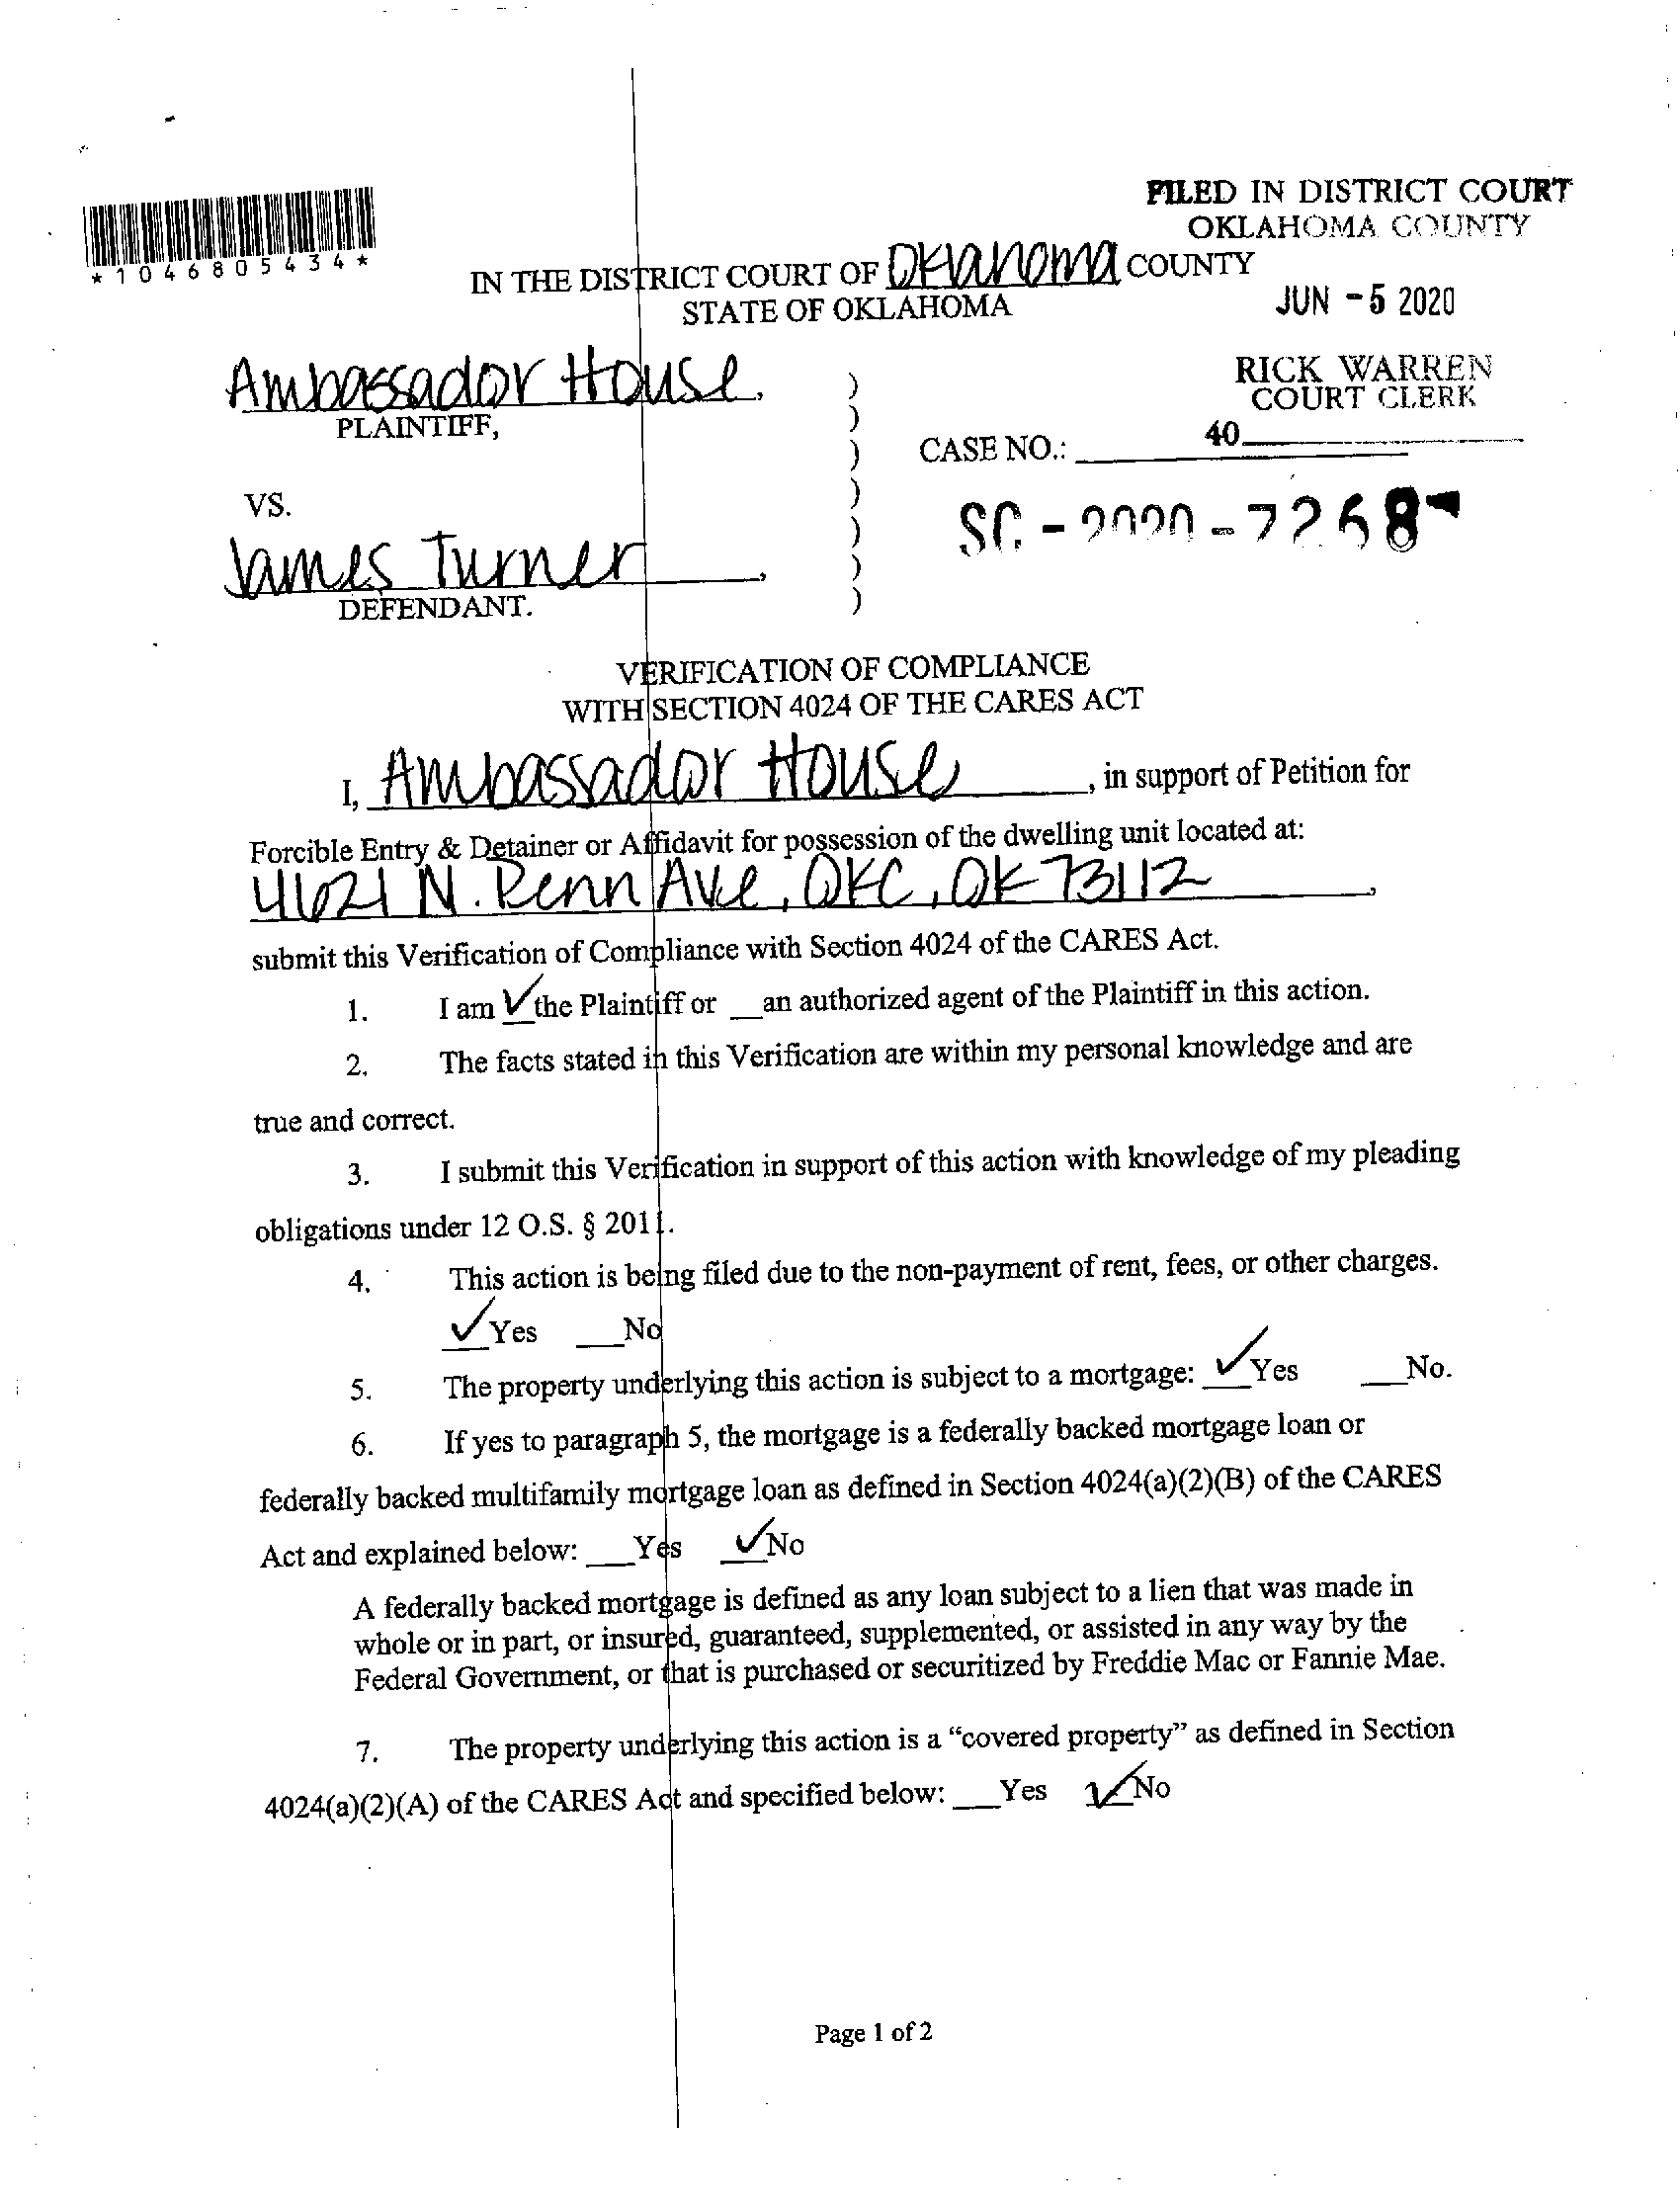 FILED IN DISTRICT COURT
OKLAHOMA COUNTY
*1046805434*
IN THE DISTRICT COURT OF Oklahoma COUNTY
STATE OF OKLAHOMA
JUN -5 2020
Ambassador House,
PLAINTIFF,
RICK WARREN
COURT CLERK
40
CASE NO.:
VS.
SC - 2020 - 7268
James Turner,
DEFENDANT.
)
)
)
)
)
)
)
VERIFICATION OF COMPLIANCE
WITH SECTION 4024 OF THE CARES ACT
I, Ambassador House, in support of Petition for
Forcible Entry & Detainer or Affidavit for possession of the dwelling unit located at:
4621 N. Penn Ave, OKC, OK 73112,
submit this Verification of Compliance with Section 4024 of the CARES Act.
1. I am ✓ the Plaintiff or __an authorized agent of the Plaintiff in this action.
2. The facts stated in this Verification are within my personal knowledge and are
true and correct.
3. I submit this Verification in support of this action with knowledge of my pleading
obligations under 12 O.S. § 2011.
4. This action is being filed due to the non-payment of rent, fees, or other charges.
✓Yes ___No
5. The property underlying this action is subject to a mortgage: ✓Yes ___No.
6. If yes to paragraph 5, the mortgage is a federally backed mortgage loan or
federally backed multifamily mortgage loan as defined in Section 4024(a)(2)(B) of the CARES
Act and explained below: ___Yes ✓No
A federally backed mortgage is defined as any loan subject to a lien that was made in
whole or in part, or insured, guaranteed, supplemented, or assisted in any way by the
Federal Government, or that is purchased or securitized by Freddie Mac or Fannie Mae.
7. The property underlying this action is a “covered property” as defined in Section
4024(a)(2)(A) of the CARES Act and specified below: ___Yes ✓No
Page 1 of 2